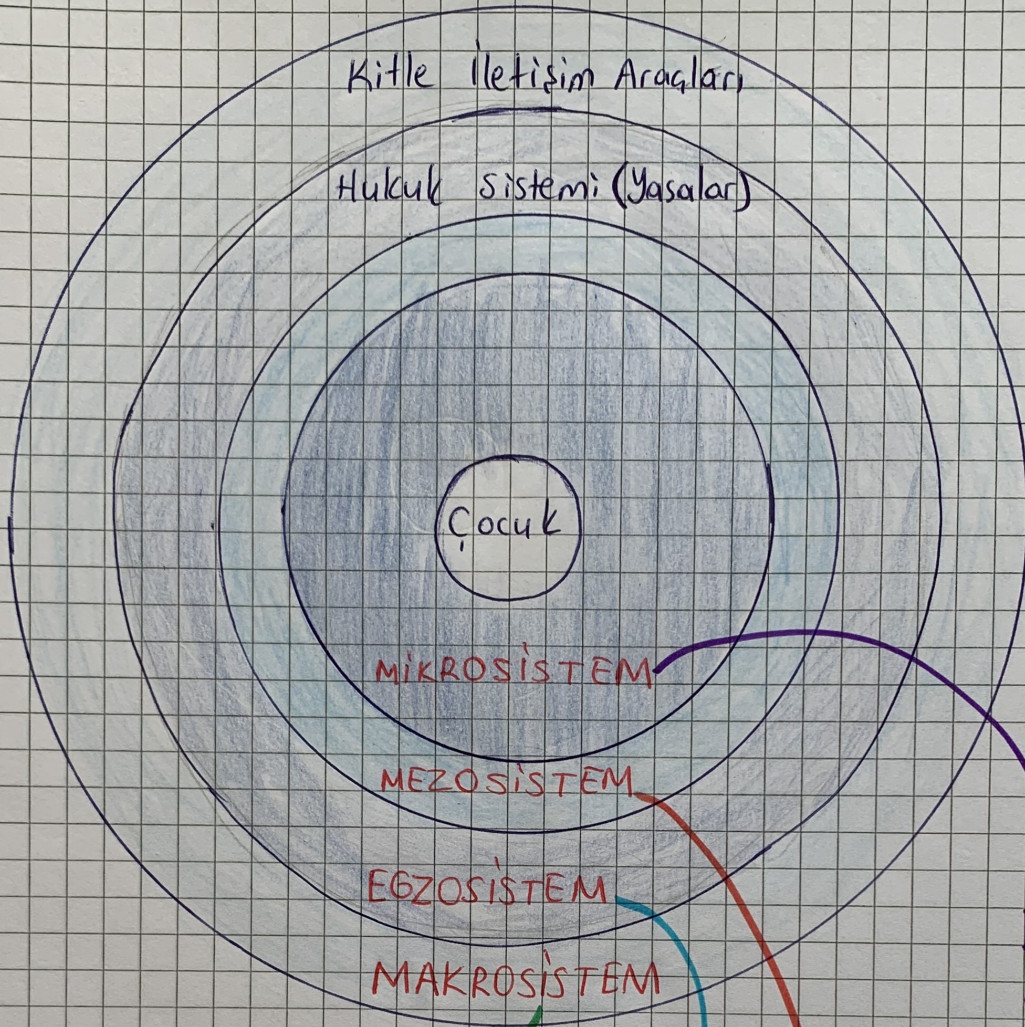 Kitle İletişim Araçları
Hukuk Sistemi (Yasalar)
Çocuk
MİKROSİSTEM
MEZOSİSTEM
EGZOSİSTEM
MAKROSİSTEM